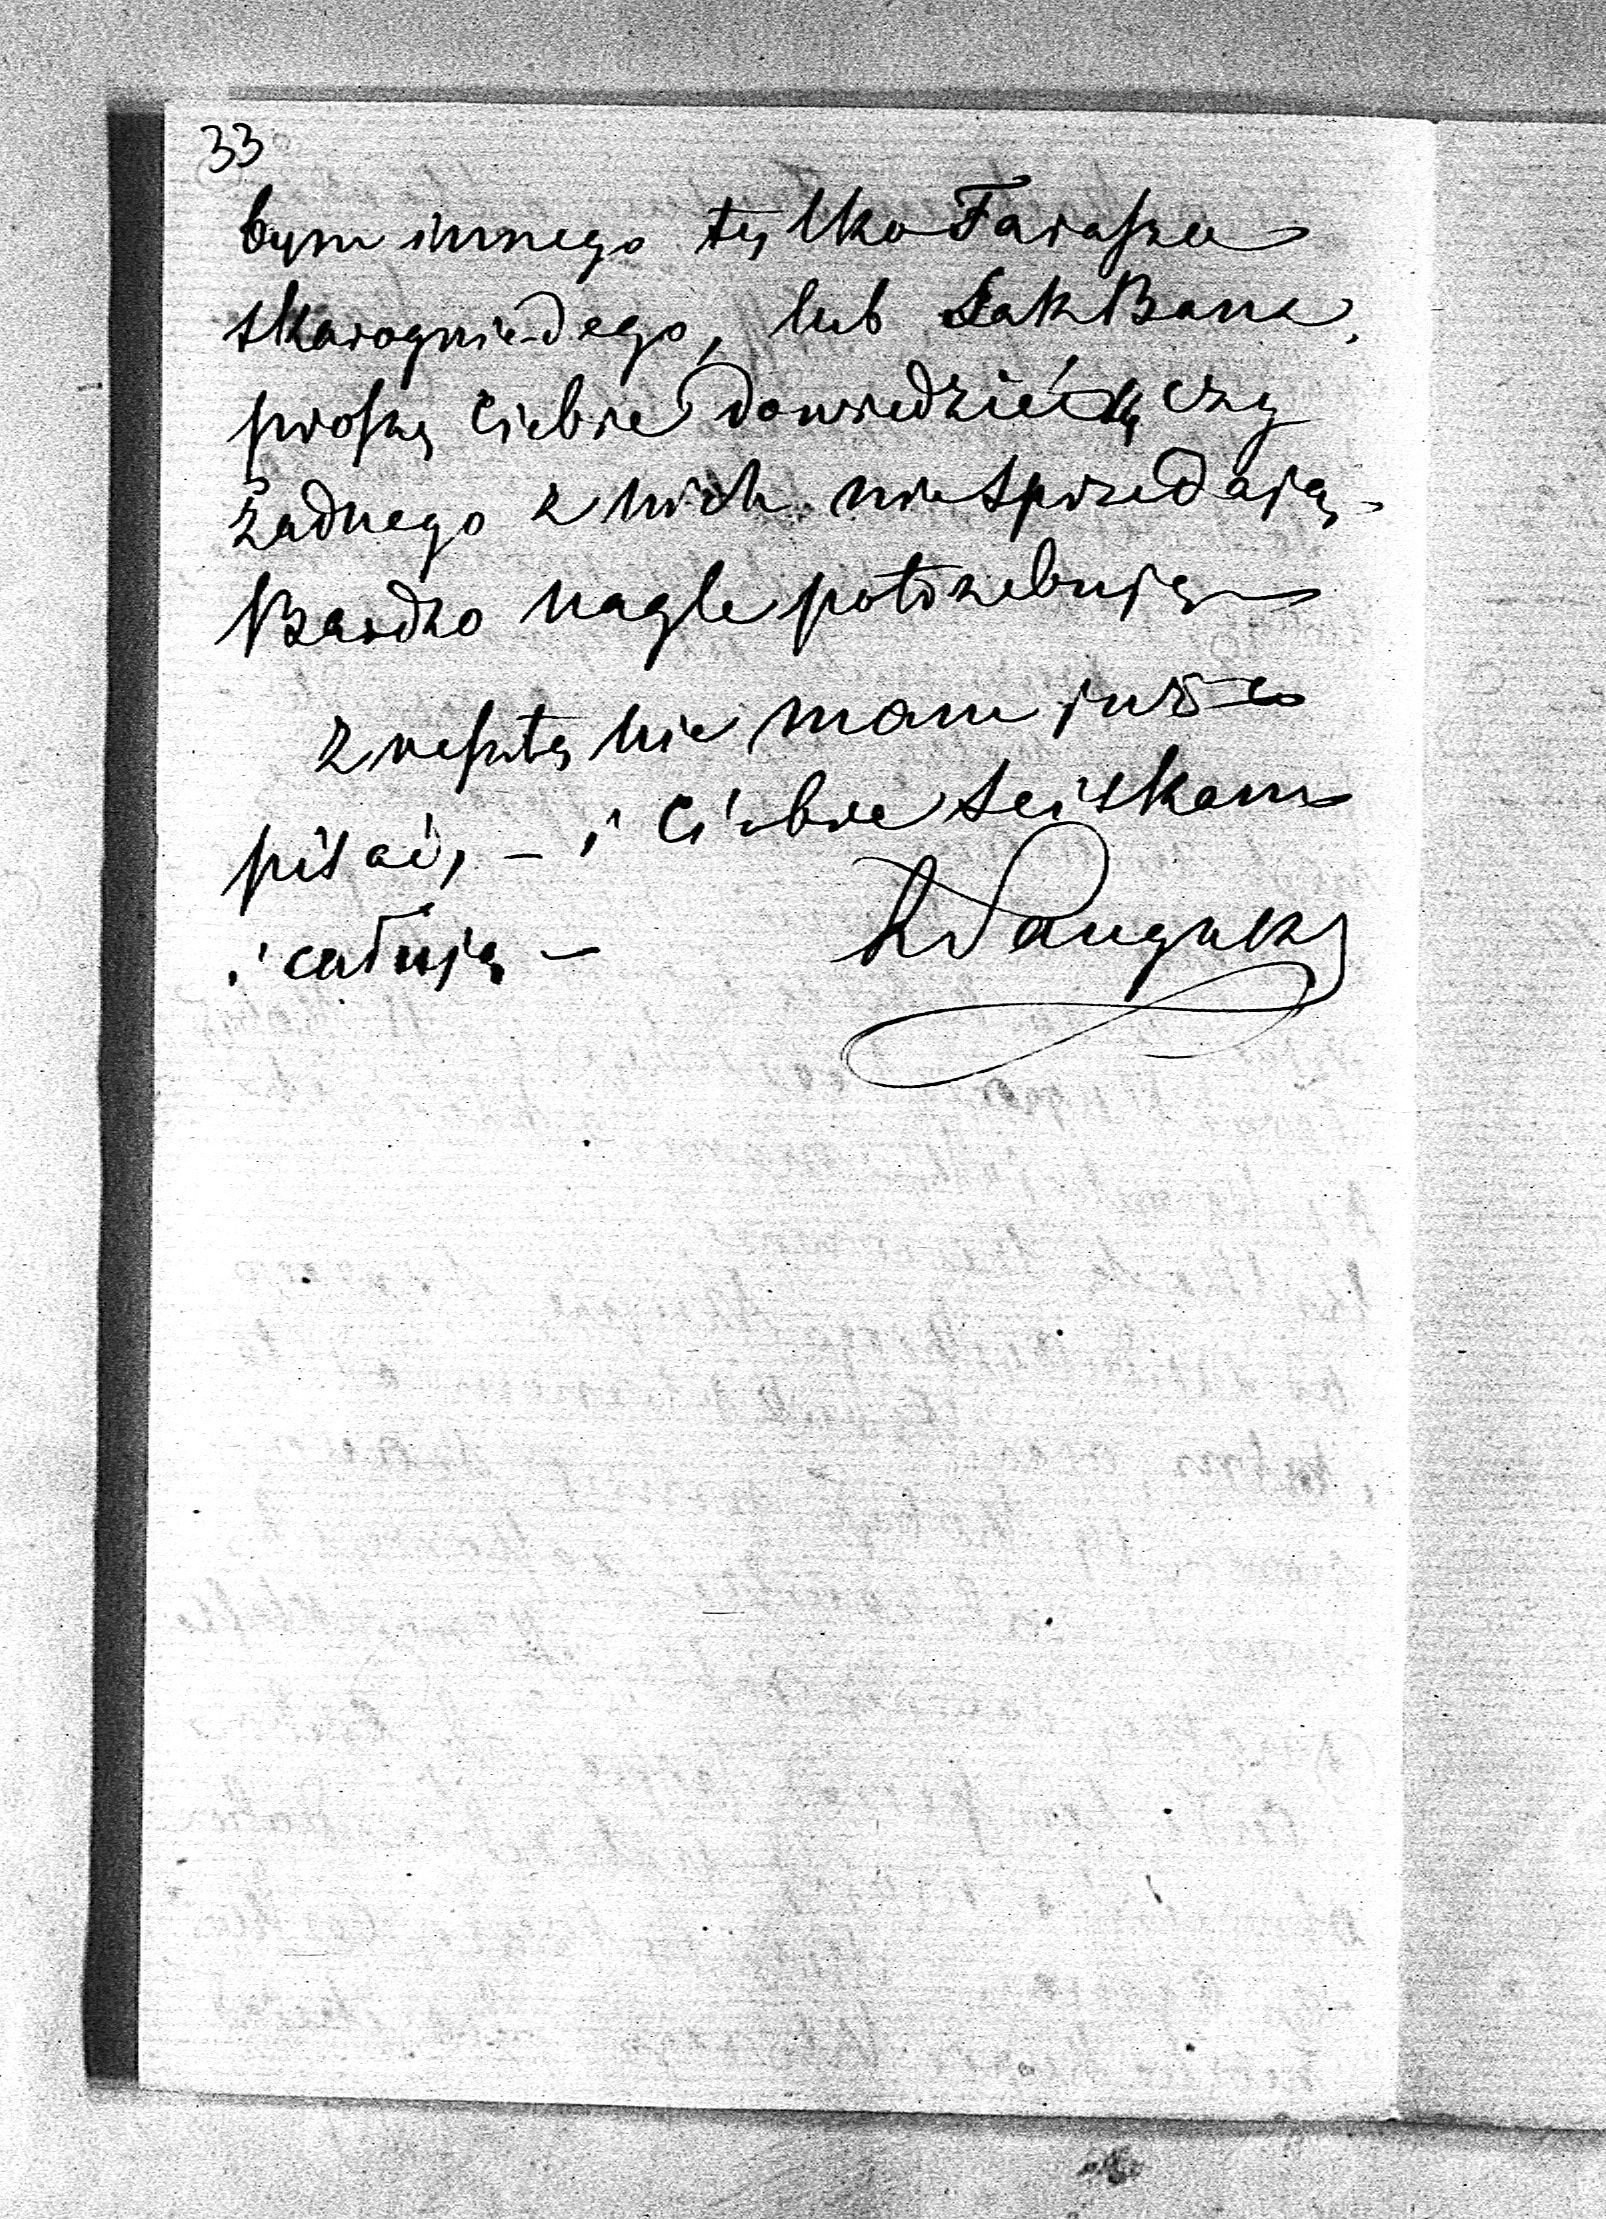 33
bym innego tylko Farasza
skarogniadego, lub SakBana,
proszę Ciebie dowiedzieć się czy
żadnego z nich nie sprzedają –
Bardzo nagle potrzebuję
z resztą nie mam już co
pisać, – i Ciebie sciskam
i całuję – RSanguszk